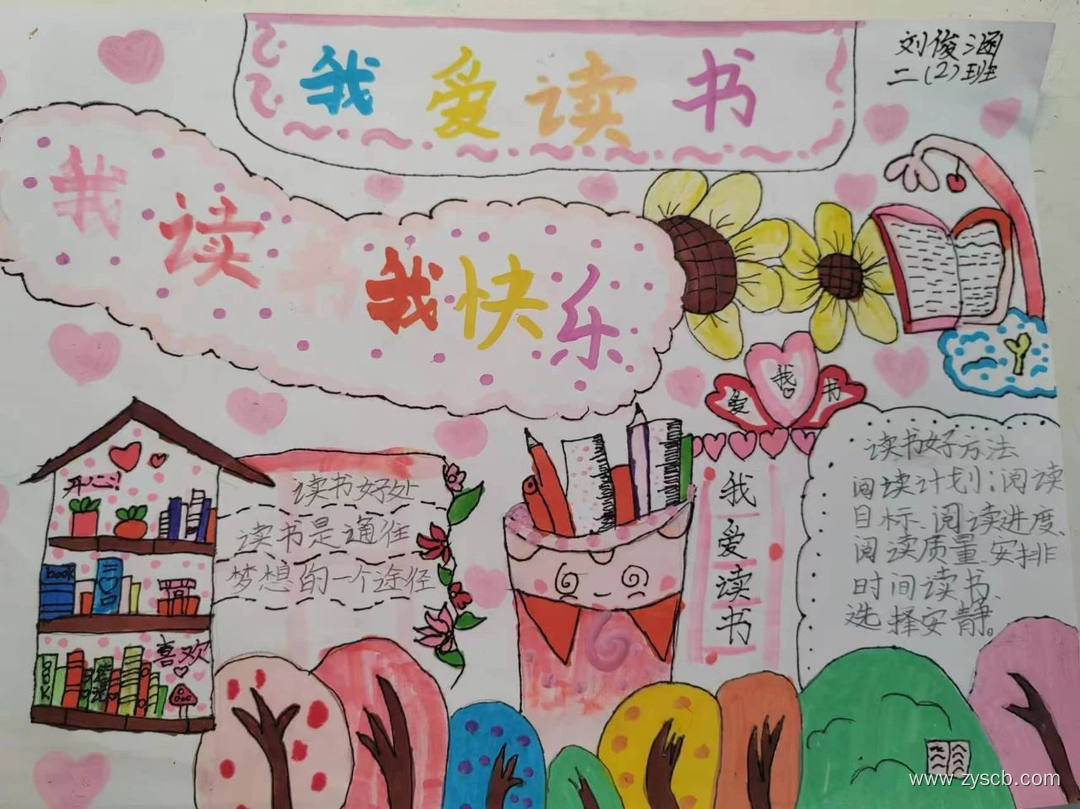 我爱读书
刘俊涵
二(2)班
我读书我快乐
爱我书
开心!
book
喜欢
BOOK
读书好处
读书是通往
梦想的一个途径
我
爱
读
书
读书好方法
阅读计划:阅读
目标、阅读进度、
阅读质量、安排
时间读书、
选择安静。
www.zyscb.com